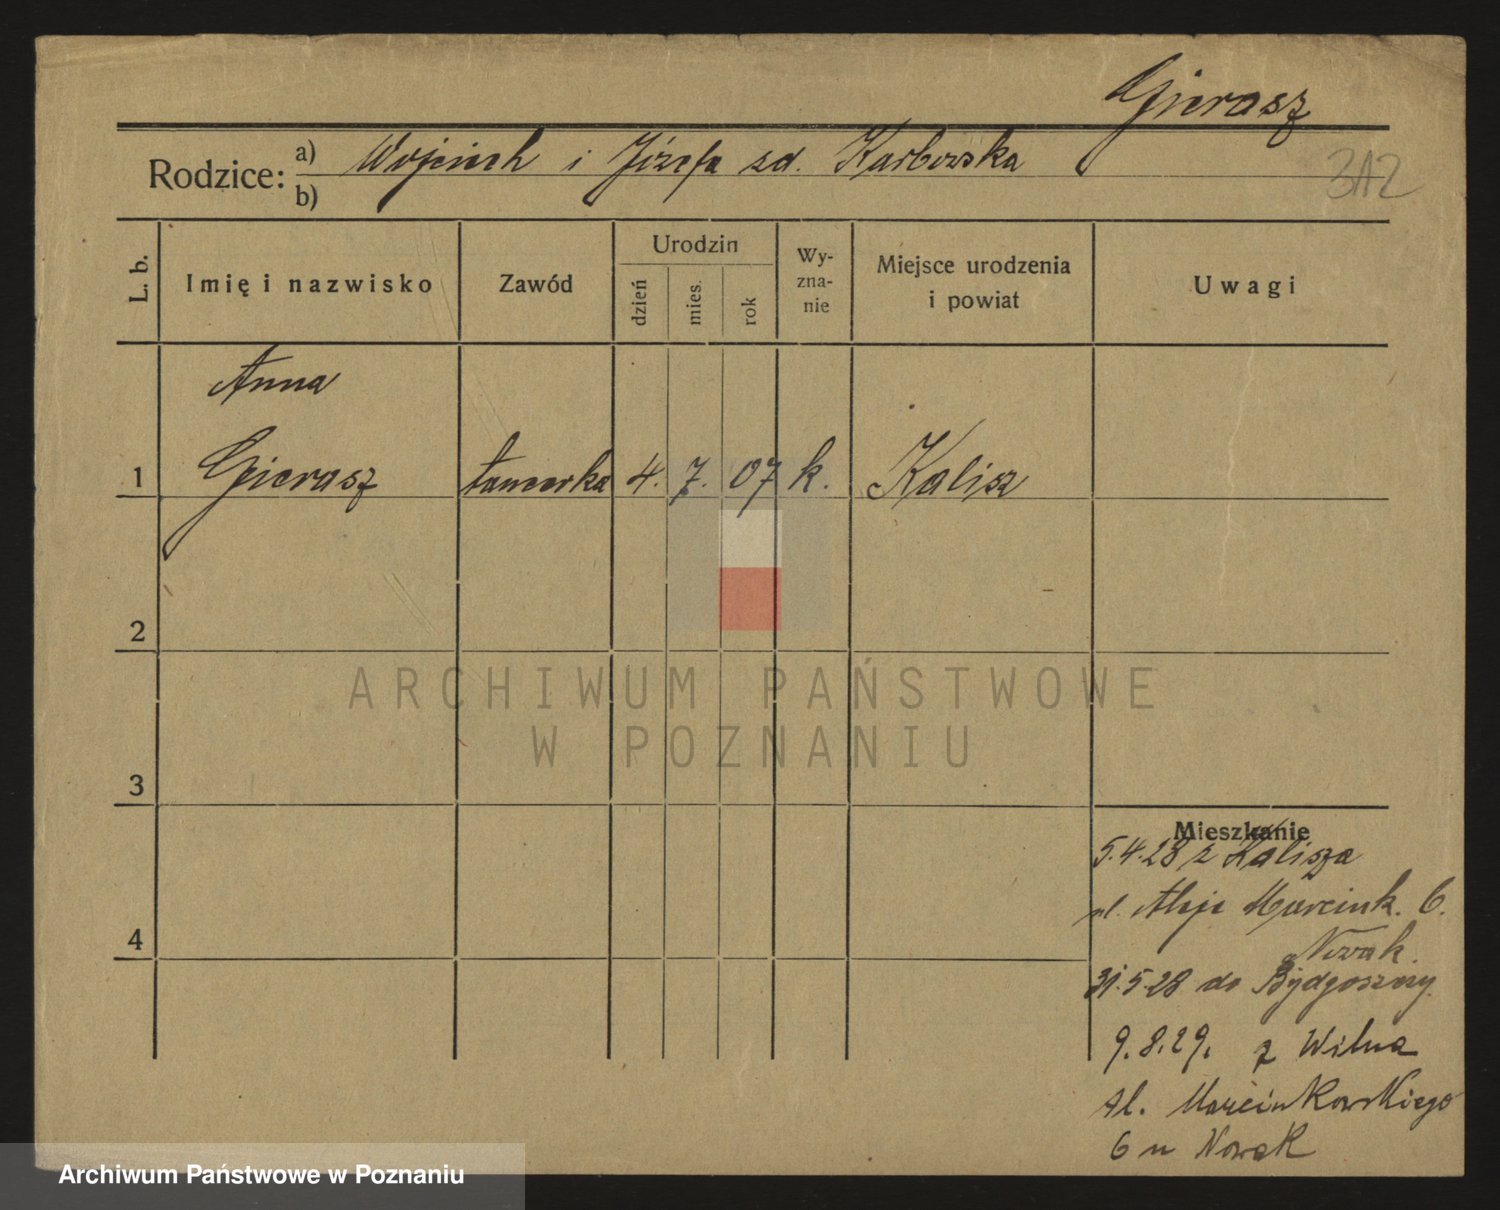 Gierasz
Rodzice: a) Wojciech i Józefa zd. Karbowska
b)
3A2
L. b.
Imię i nazwisko
Zawód
Urodzin
dzień
mies.
rok
Wy-
zna-
nie
Miejsce urodzenia
i powiat
Uwagi
Anna
1 Gierasz tancerka 4. 7. 07 k. Kalisz
2
ARCHIWUM PAŃSTWOWE
W POZNANIU
3
Mieszkanie
5.4.28 z Kalisza
ul. Aleje Marcink. 6.
4
Nowak.
31.5.28 do Bydgoszczy.
9.8.29. z Wilna
Al. Marcinkowskiego
6 u Nowak
Archiwum Państwowe w Poznaniu